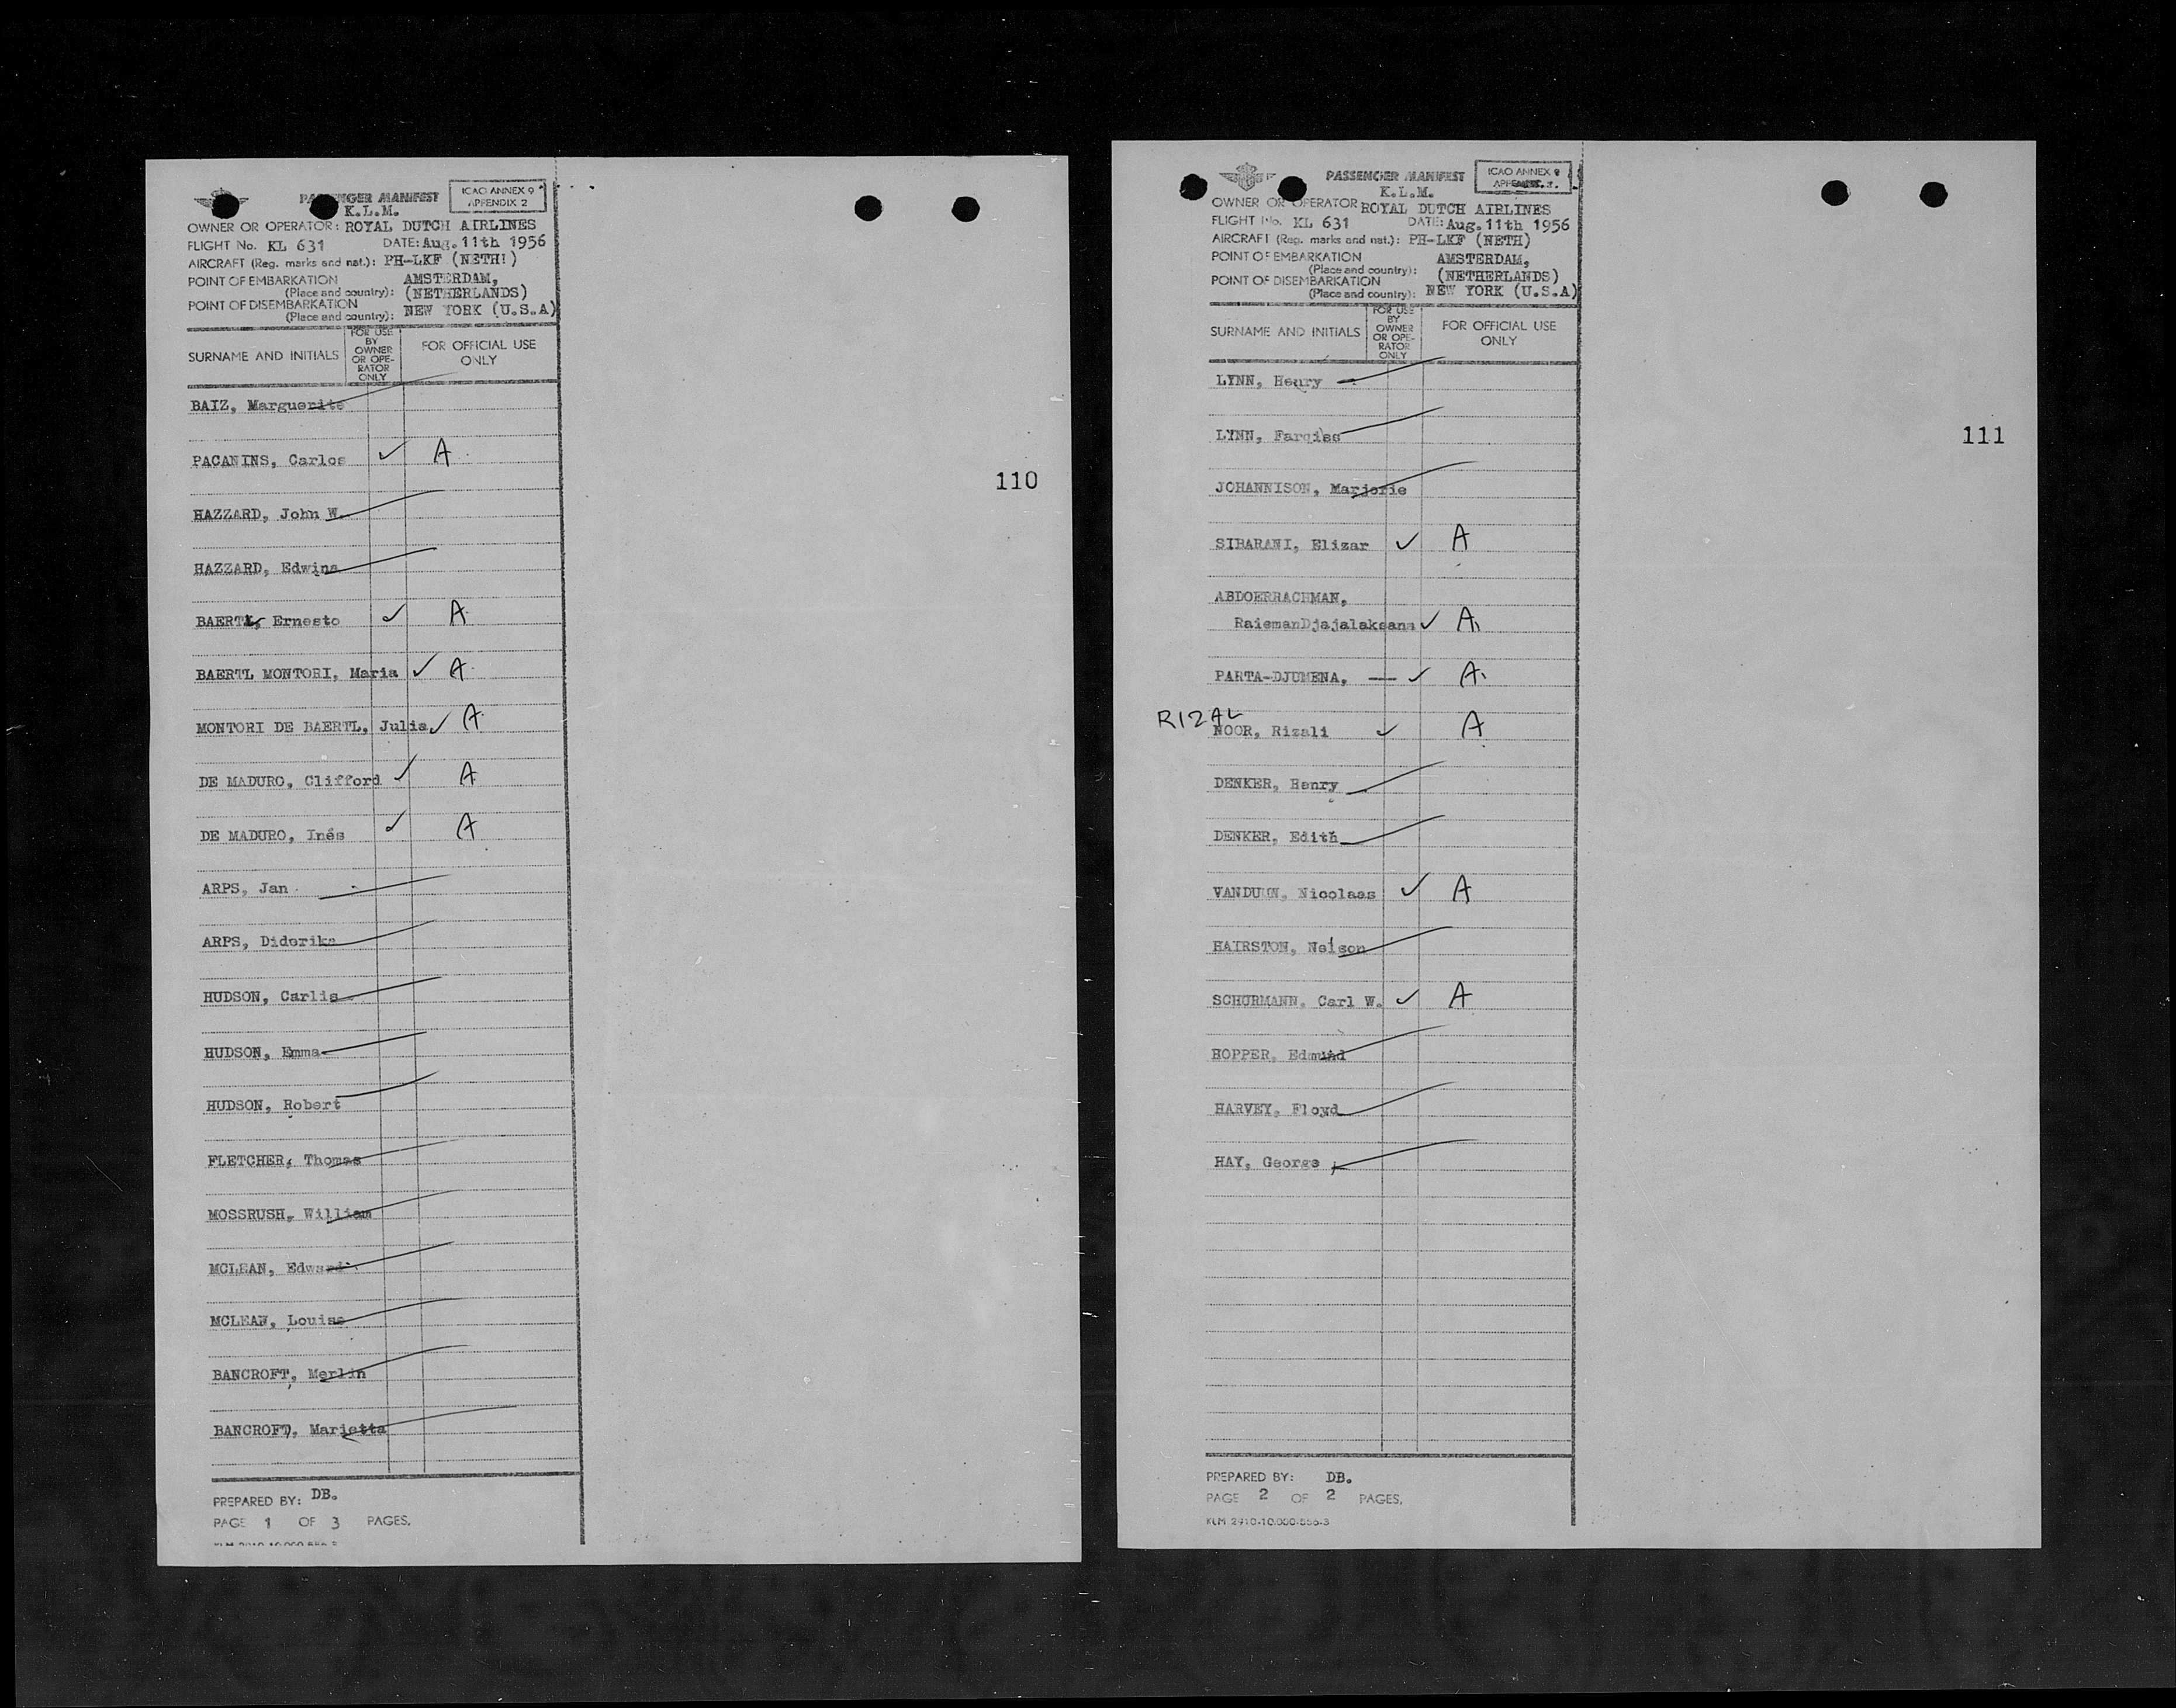 PASSENGER MANIFEST
ICAO ANNEX 9
APPENDIX 2
K.L.M.
OWNER OR OPERATOR: ROYAL DUTCH AIRLINES
FLIGHT No. KL 631 DATE: Aug. 11th 1956
AIRCRAFT (Reg. marks and nat.): PH-LKF (NETH!)
POINT OF EMBARKATION AMSTERDAM,
(Place and country): (NETHERLANDS)
POINT OF DISEMBARKATION
(Place and country): NEW YORK (U.S.A)
SURNAME AND INITIALS
FOR USE
BY
OWNER
OR OPE-
RATOR
ONLY
FOR OFFICIAL USE
ONLY
BAIZ, Marguerite
PACANINS, Carlos ✓ A
110
HAZZARD, John W.
HAZZARD, Edwina
BAERTL, Ernesto ✓ A
BAERTL MONTORI, Maria ✓ A
MONTORI DE BAERTL, Julia ✓ A
DE MADURO, Clifford ✓ A
DE MADURO, Inés ✓ A
ARPS, Jan
ARPS, Diderika
HUDSON, Carlis
HUDSON, Emma
HUDSON, Robert
FLETCHER, Thomas
MOSSRUSH, William
MCLEAN, Edward
MCLEAN, Louise
BANCROFT, Merlin
BANCROFT, Marietta
PREPARED BY: DB.
PAGE 1 OF 3 PAGES.
PASSENGER MANIFEST
ICAO ANNEX 9
APPENDIX 2.
K.L.M.
OWNER OR OPERATOR ROYAL DUTCH AIRLINES
FLIGHT No. KL 631 DATE: Aug. 11th 1956
AIRCRAFT (Reg. marks and nat.): PH-LKF (NETH)
POINT OF EMBARKATION AMSTERDAM,
(Place and country): (NETHERLANDS)
POINT OF DISEMBARKATION
(Place and country): NEW YORK (U.S.A)
SURNAME AND INITIALS
FOR USE
BY
OWNER
OR OPE-
RATOR
ONLY
FOR OFFICIAL USE
ONLY
LYNN, Henry
LYNN,
111
JOHANNISON, Marjorie
SIBARANI, Elizar ✓ A
ABDOERRACHMAN,
RaiemanDjajalaksana ✓ A
PARTA-DJUMENA, — ✓ A
RIZAL
NOOR, Rizali ✓ A
DENKER, Henry
DENKER, Edith
Nicolaas ✓ A
HAIRSTON, Nelson
SCHURMANN, Carl W. ✓ A
HOPPER, Edmund
HARVEY, Floyd
HAY, George
PREPARED BY: DB.
PAGE 2 OF 2 PAGES.